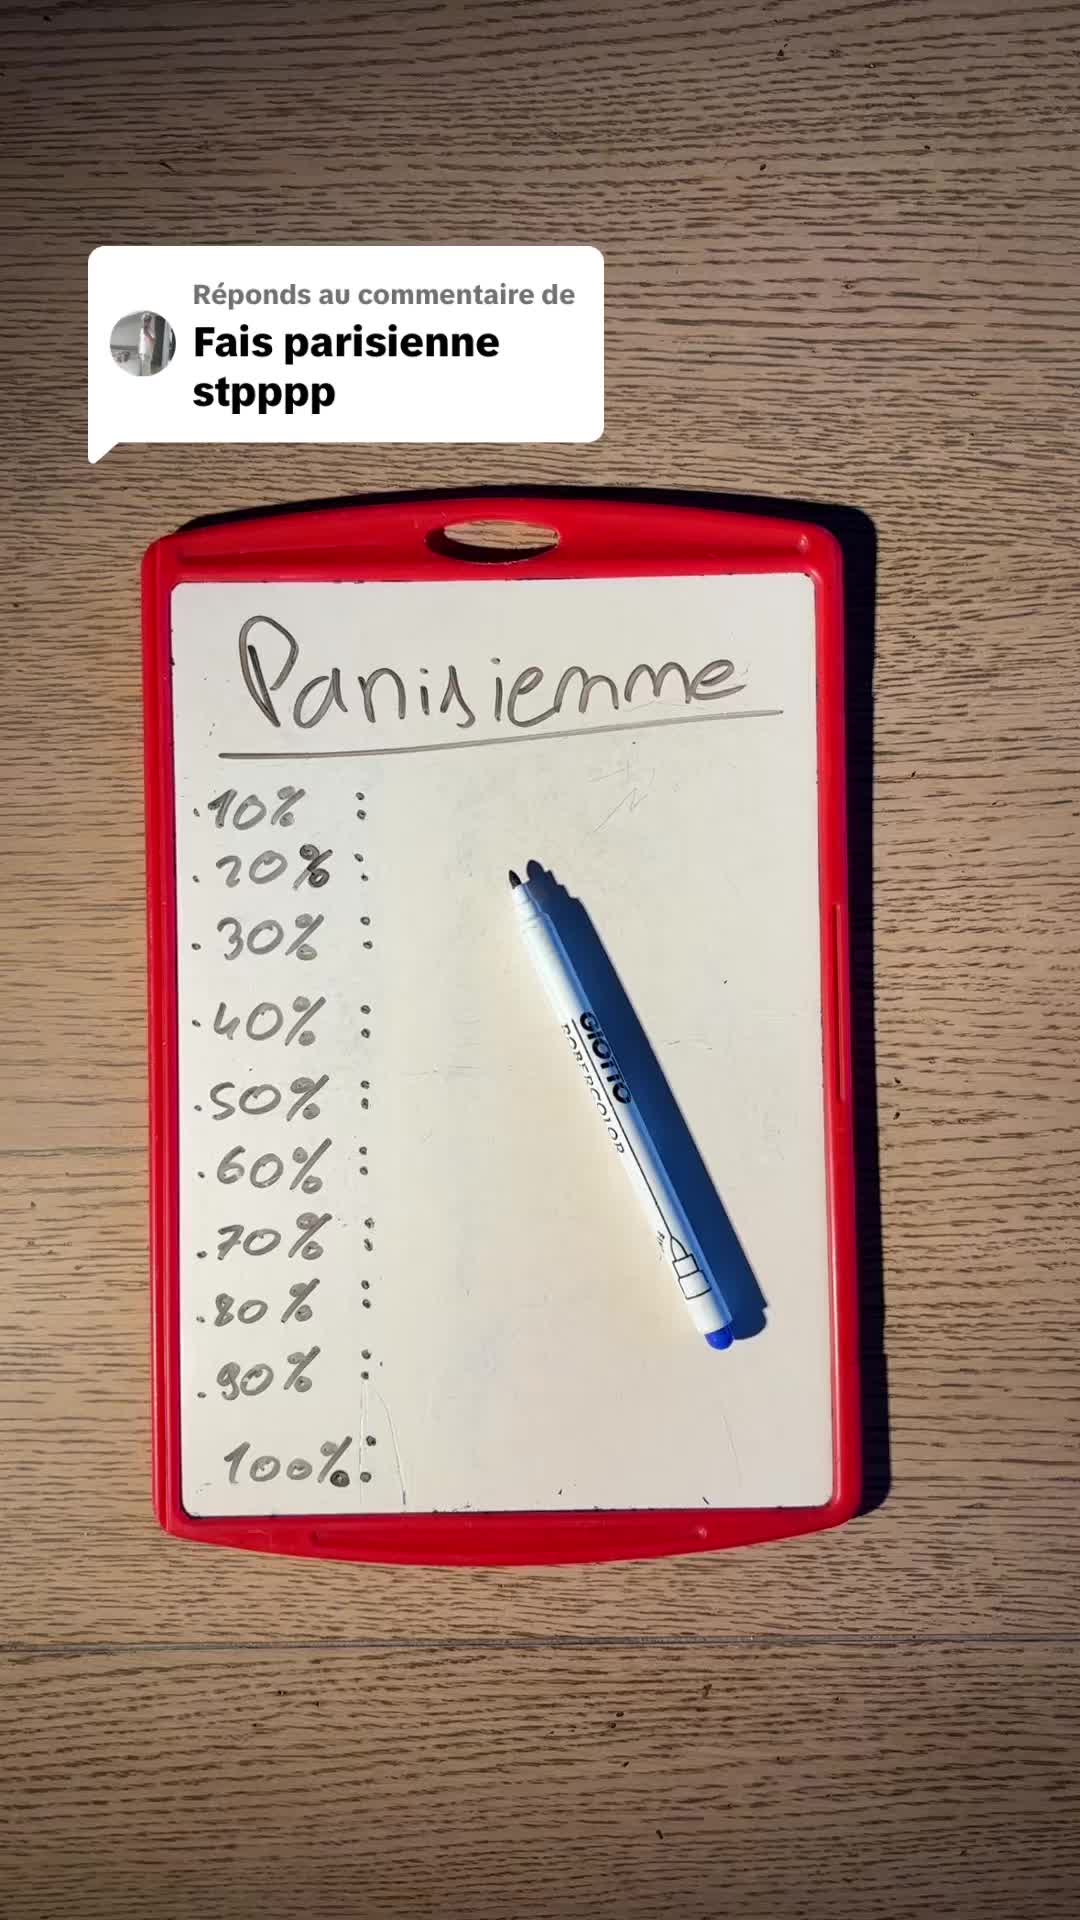 Réponds au commentaire de
Fais parisienne
stpppp
Parisienne
.10% :
.20% :
.30% :
.40% :
.50% :
.60% :
.70% :
.80% :
.90% :
100% :
GIOTTO
ROBERCOLOR